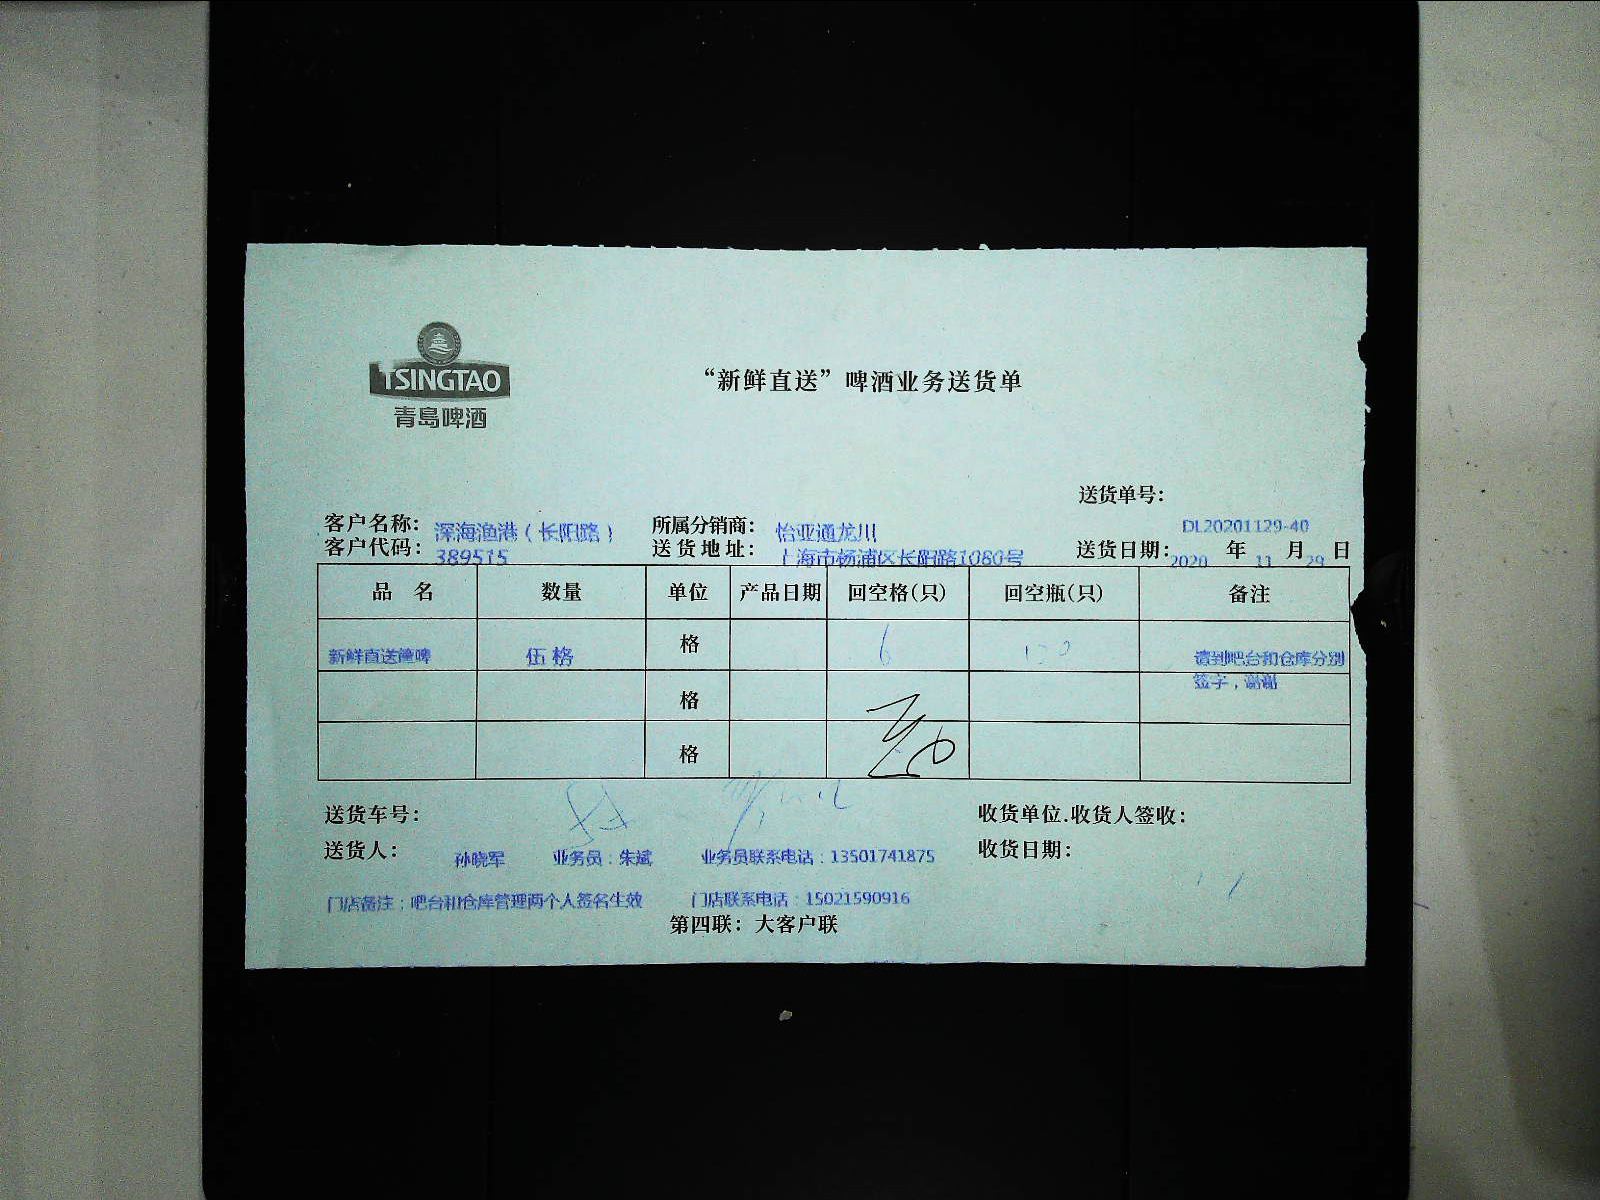 TSINGTAO
青岛啤酒
“新鲜直送”啤酒业务送货单
送货单号：
DL20201129-40
客户名称： 深海渔港（长阳路） 所属分销商： 怡亚通龙川
客户代码： 389515 送货地址： 上海市杨浦区长阳路1080号 送货日期： 2020 年 11 月 29 日
品 名 数量 单位 产品日期 回空格(只) 回空瓶(只) 备注
新鲜直送箱啤 伍格 格 6 请到吧台和仓库分别
签字，谢谢
格
格
送货车号： 收货单位.收货人签收：
送货人： 孙晓军 业务员：朱斌 业务员联系电话：13501741875 收货日期：
门店备注：吧台和仓库管理两个人签名生效 门店联系电话：15021590916
第四联：大客户联